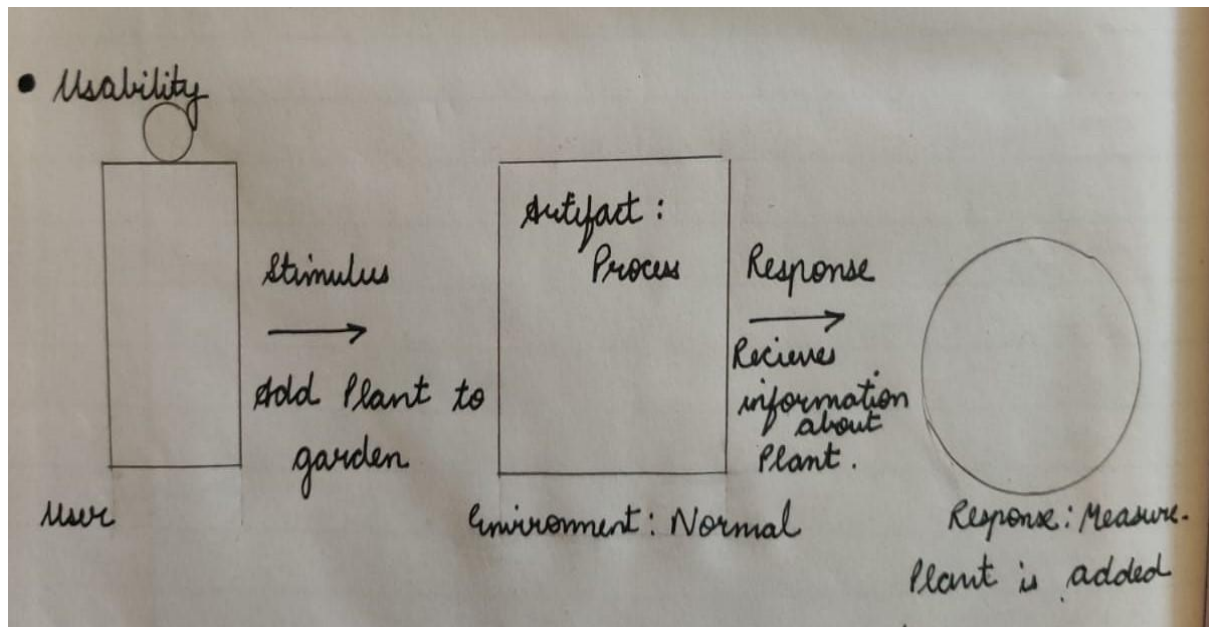 • Usability
Stimulus
Add Plant to
garden
User
Artifact :
Process
Environment : Normal
Response
Recieves
information
about
Plant .
Response : Measure.
Plant is added